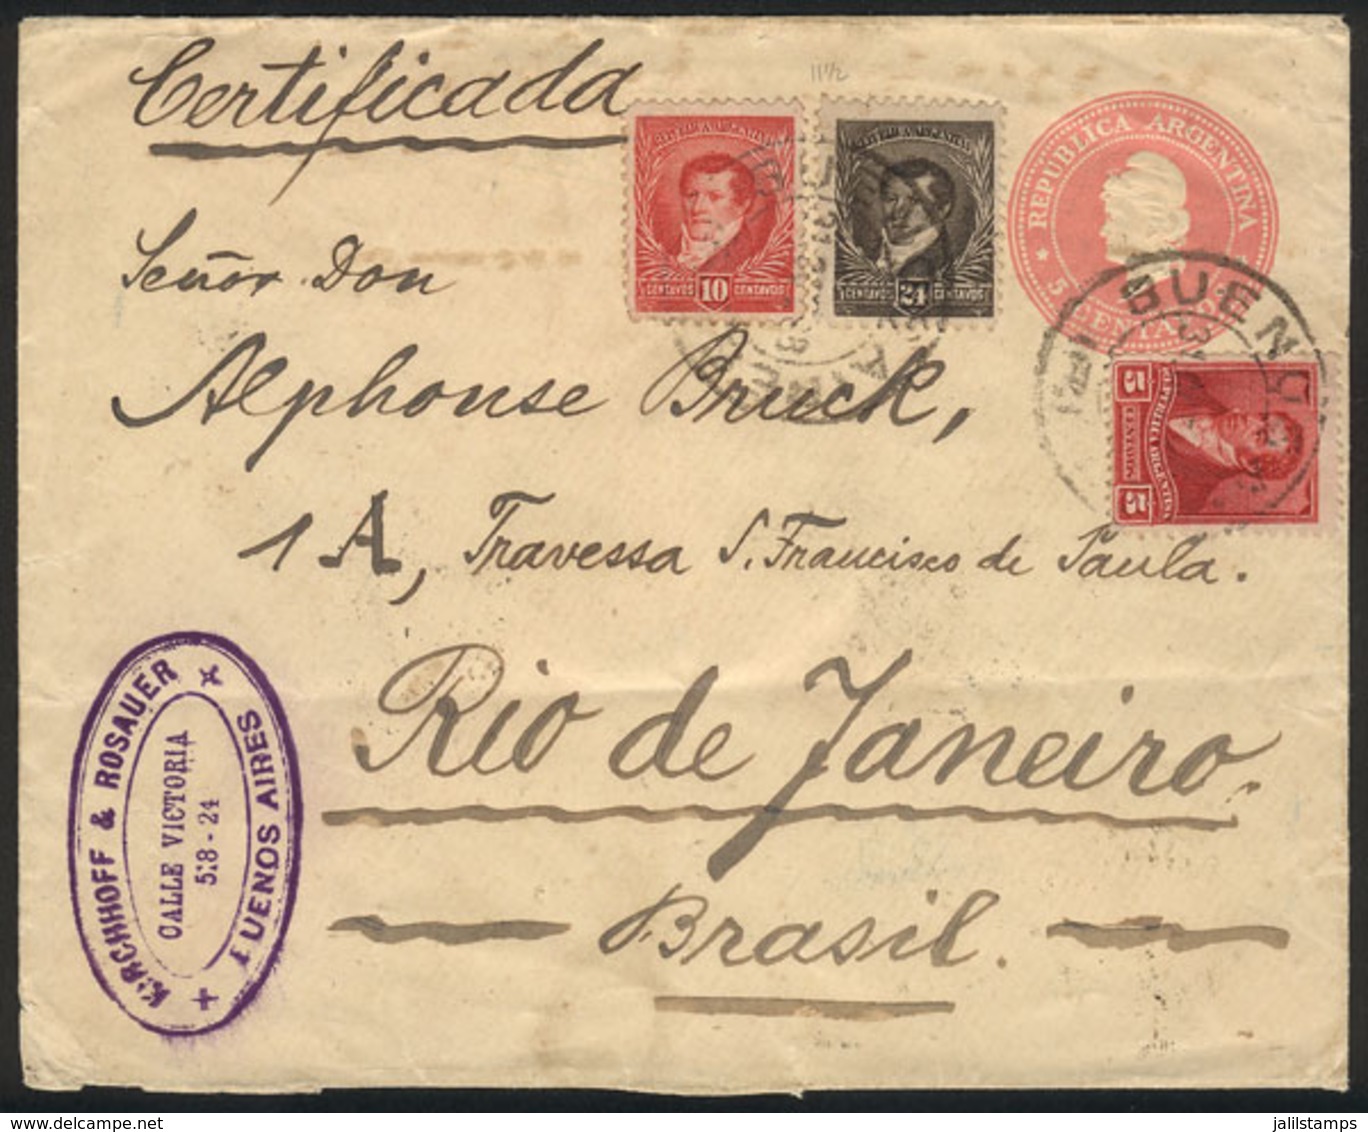 Certificada
11½
REPUBLICA ARGENTINA
10
CENTAVOS CENTAVOS
REPUBLICA ARGENTINA
24
CENTAVOS CENTAVOS
REPUBLICA ARGENTINA
5 CENTAVOS
Señor Don
Alphonse Bruck,
BUENOS AIRES
REPUBLICA ARGENTINA
5 CENTAVOS 5
1A, Travessa S. Francisco de Paula.
Rio de Janeiro.
Brasil.
KIRCHHOFF & ROSAUER
CALLE VICTORIA
BUENOS AIRES
jalilstamps